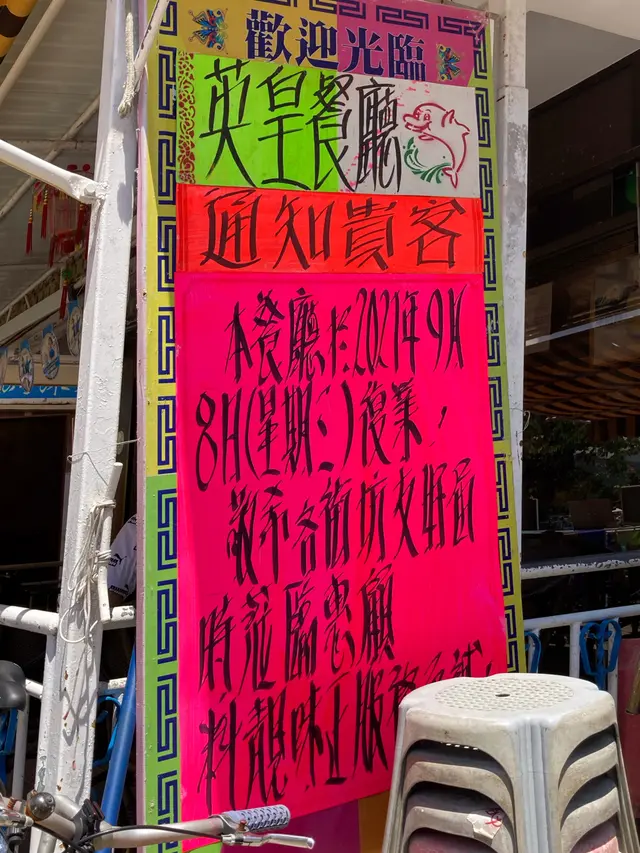 歡迎光臨
英皇餐廳
通知貴客
本餐廳於2021年9月
8日(星期三)復業,
敬希各街坊友好屆
時蒞臨惠顧
料靚味正服